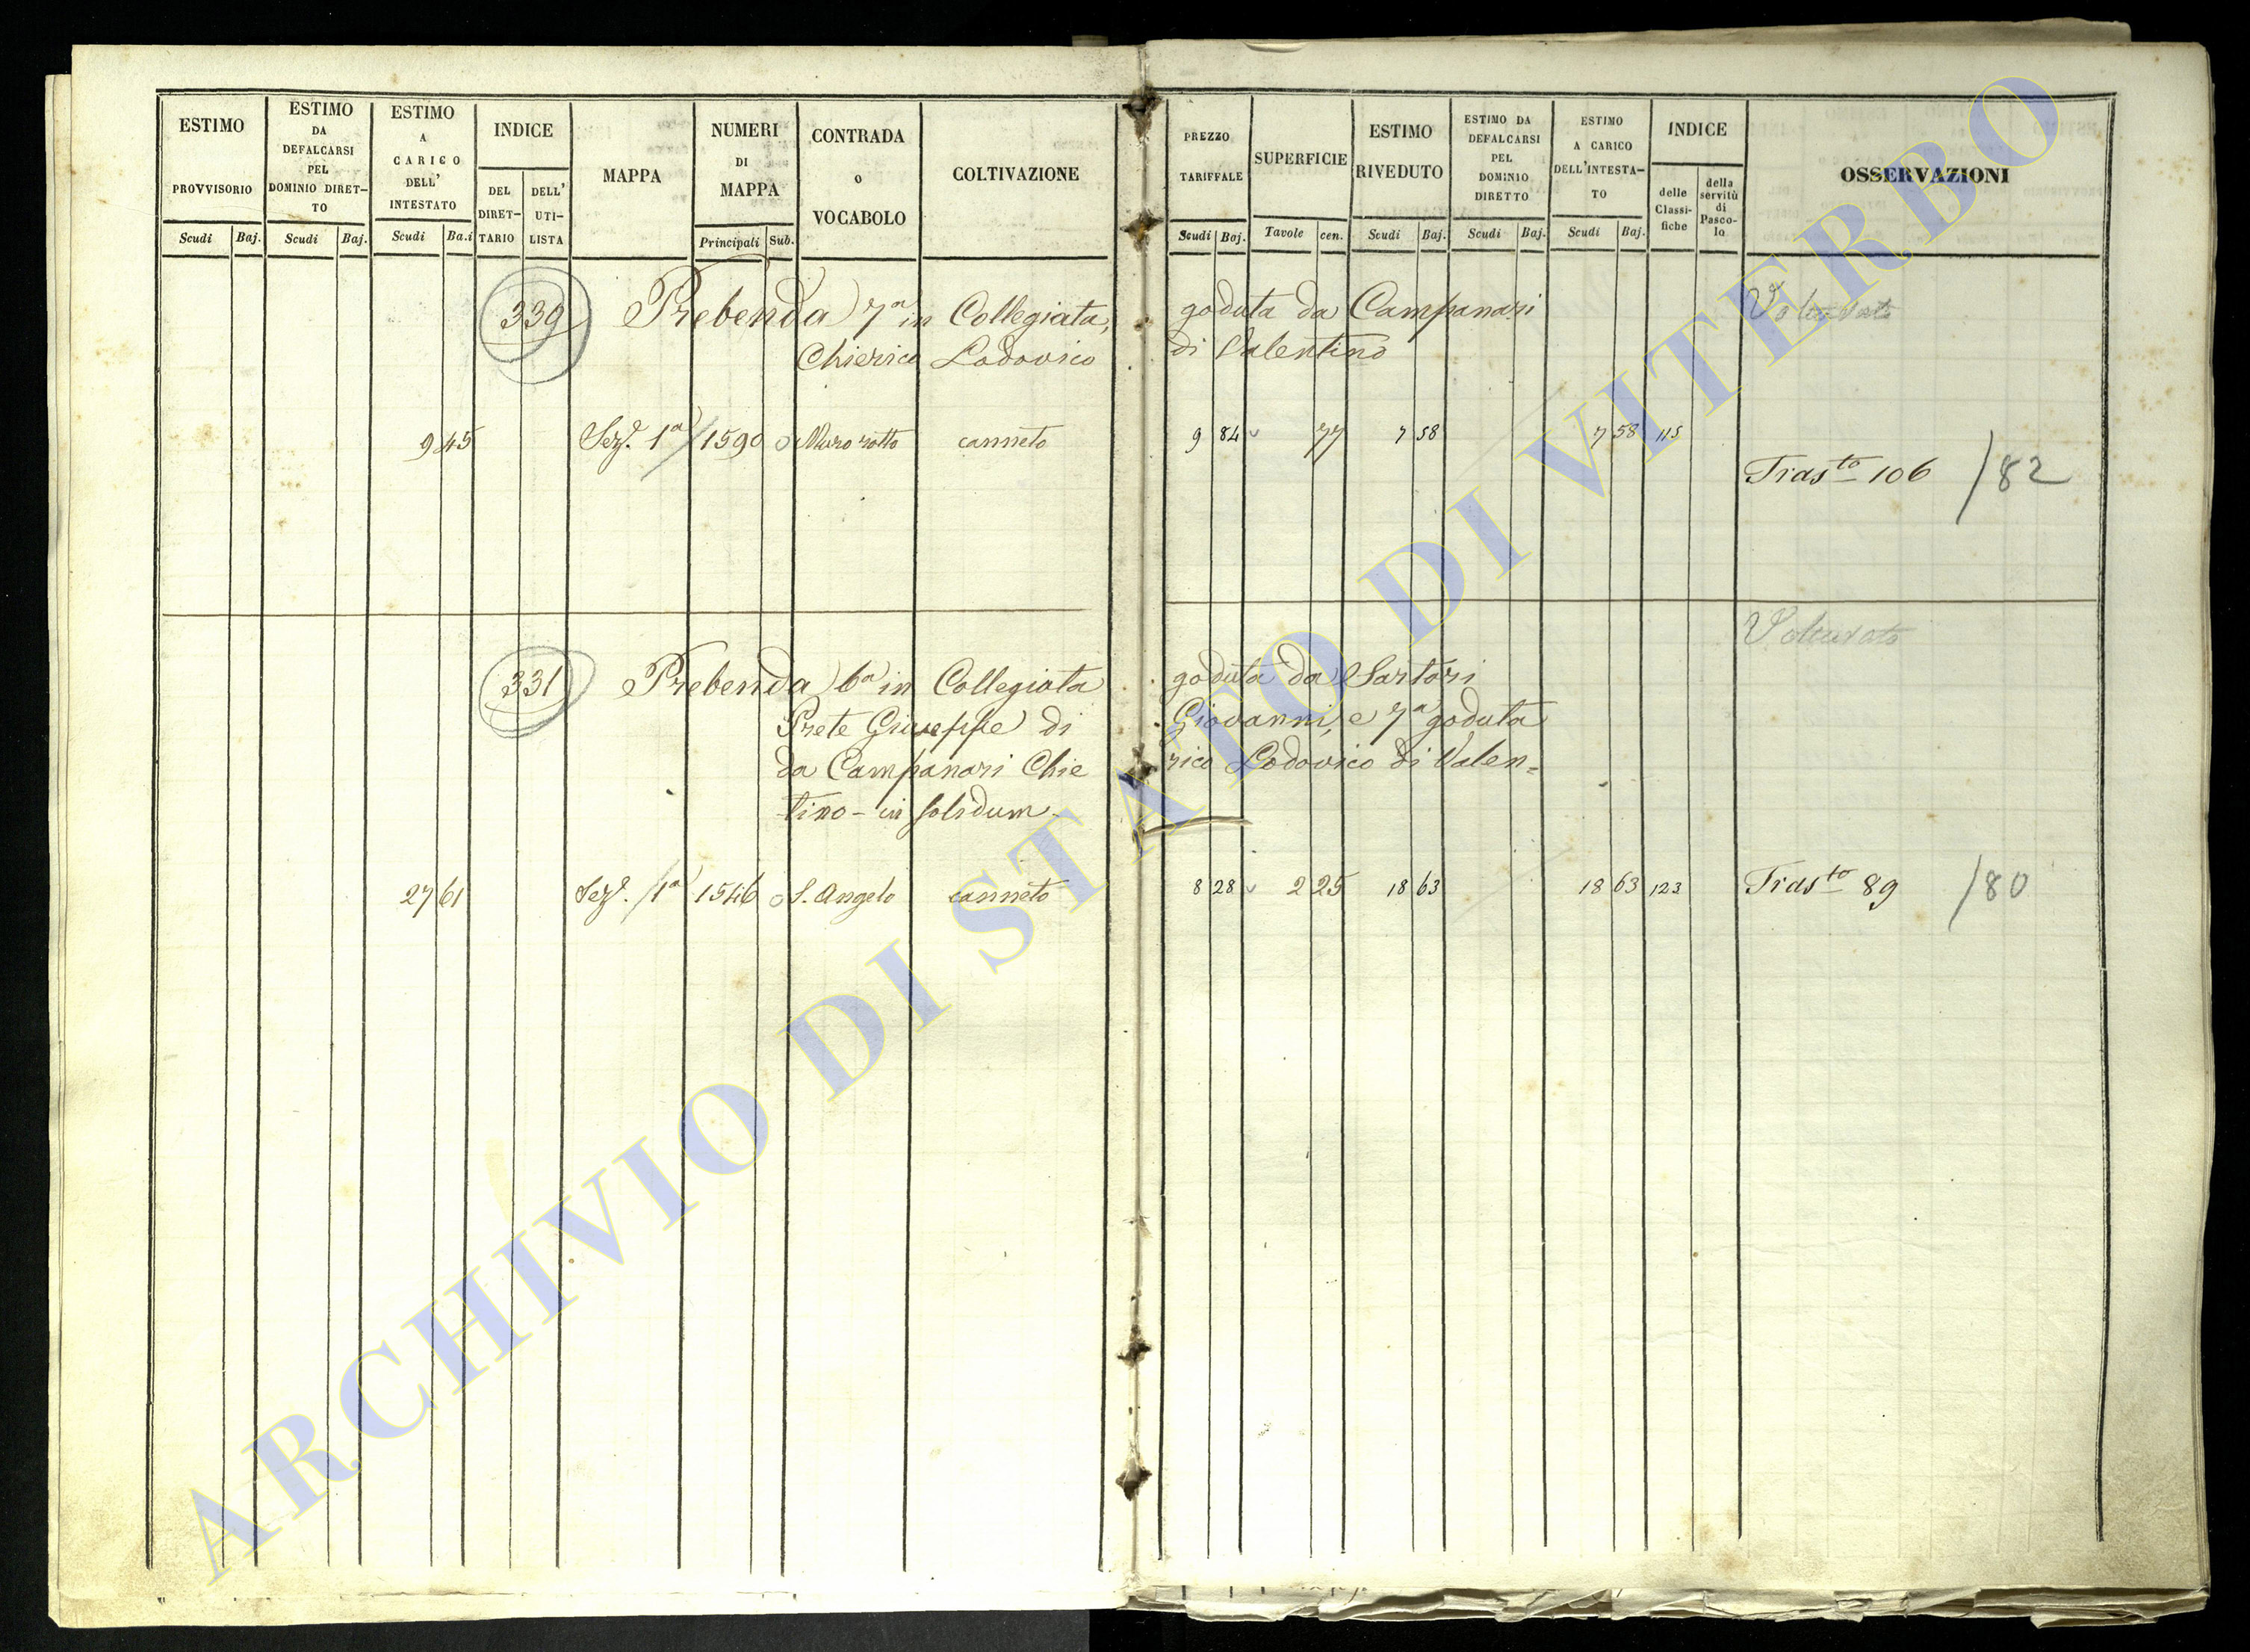 ESTIMO
PROVVISORIO
Scudi Baj.
ESTIMO
DA
DEFALCARSI
PEL
DOMINIO DIRET-
TO
Scudi Baj.
ESTIMO
A
CARICO
DELL'
INTESTATO
Scudi Ba.i
INDICE
DEL
DIRET-
TARIO
DELL'
UTI-
LISTA
MAPPA
NUMERI
DI
MAPPA
Principali Sub.
CONTRADA
o
VOCABOLO
COLTIVAZIONE
PREZZO
TARIFFALE
Scudi Baj.
SUPERFICIE
Tavole cen.
ESTIMO
RIVEDUTO
Scudi Baj.
ESTIMO DA
DEFALCARSI
PEL
DOMINIO
DIRETTO
Scudi Baj.
ESTIMO
A CARICO
DELL'INTESTA-
TO
Scudi Baj.
INDICE
delle
Classi-
fiche
della
servitù
di
Pasco-
lo
OSSERVAZIONI
339 Prebenda 7a in Collegiata, goduta da Campanari
Chierico Lodovico di Valentino
9 45 Seze. 1a 1590 Muro rotto canneto 9 84 77 7 58 7 58 115
Trasto 106 /82
331 Prebenda 6a in Collegiata goduta da Sartori
Prete Giuseppe di Giovanni, e 7a goduta
da Campanari Chie rico Lodovico di Valen=
tino - in solidum -
27 61 Seze. 1a 1546 S. Angelo canneto 8 28 2 25 18 63 18 63 123 Trasto 89 /80
ARCHIVIO DI STATO DI VITERBO